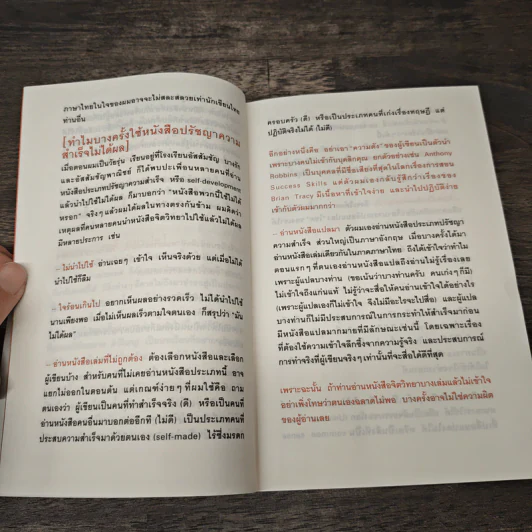 ภาษาไทยในใจของผมอาจจะไม่สละสลวยเท่านักเขียนไทย
ท่านอื่น
[ทำไมบางครั้งใช้หนังสือปรัชญาความ
สำเร็จไม่ได้ผล]
เมื่อตอนผมเป็นวัยรุ่น เรียนอยู่ที่โรงเรียนอัสสัมชัญ บางรัก
และอัสสัมชัญพาณิชย์ ก็ได้พบปะเพื่อนหลายคนที่อ่าน
หนังสือประเภทปรัชญาความสำเร็จ หรือ self-development
แล้วนำไปใช้ไม่ได้ผล ก็มาบอกว่า "หนังสือพวกนี้ใช้ไม่ได้
หรอก" จริงๆ แล้วผมได้ผลในทางตรงกันข้าม ผมคิดว่า
เหตุผลที่คนหลายคนนำหนังสือจิตวิทยาไปใช้แล้วไม่ได้ผล
มีหลายประการ เช่น
– ไม่นำไปใช้ อ่านเฉยๆ เข้าใจ เห็นจริงด้วย แต่เมื่อไม่ได้
นำไปใช้ก็ลืม
– ใจร้อนเกินไป อยากเห็นผลอย่างรวดเร็ว ไม่ได้นำไปใช้
นานเพียงพอ เมื่อไม่เห็นผลเร็วตามใจตนเอง ก็สรุปว่า "มัน
ไม่ได้ผล"
– อ่านหนังสือเล่มที่ไม่ถูกต้อง ต้องเลือกหนังสือและเลือก
ผู้เขียนบ้าง สำหรับคนที่ไม่เคยอ่านหนังสือประเภทนี้ อาจ
แยกไม่ออกในตอนต้น แต่เกณฑ์ง่ายๆ ที่ผมใช้คือ ถาม
ตนเองว่า ผู้เขียนเป็นคนที่ทำสำเร็จจริง (ดี) หรือเป็นคนที่
อ่านหนังสือคนอื่นมาบอกต่ออีกที (ไม่ดี) เป็นประเภทคนที่
ประสบความสำเร็จมาด้วยตนเอง (self-made) ไร้ซึ่งมรดก
ครอบครัว (ดี) หรือเป็นประเภทคนที่เก่งเรื่องทฤษฎี แต่
ปฏิบัติจริงไม่ได้ (ไม่ดี)
อีกอย่างหนึ่งคือ อย่าเอา"ความดัง" ของผู้เขียนเป็นตัวนำ
เพราะบางคนไม่เข้ากับบุคลิกคุณ ยกตัวอย่างเช่น Anthony
Robbins เป็นบุคคลที่มีชื่อเสียงที่สุดในโลกเรื่องการสอน
Success Skills แต่ตัวผมเองกลับรู้สึกว่าเรื่องของ
Brian Tracy มีเนื้อหาที่เข้าใจง่าย และนำไปปฏิบัติง่าย
เข้ากับตัวผมมากกว่า
– อ่านหนังสือแปลมา ตัวผมเองอ่านหนังสือประเภทปรัชญา
ความสำเร็จ ส่วนใหญ่เป็นภาษาอังกฤษ เมื่อบางครั้งได้มา
อ่านหนังสือเล่มเดียวกันในภาคภาษาไทย ถึงได้เข้าใจว่าทำไม
ตอนแรกๆ ที่ตนเองอ่านหนังสือแปลถึงอ่านไม่รู้เรื่องเลย
เพราะผู้แปลบางท่าน (ขอเน้นว่าบางท่านครับ คนเก่งๆ ก็มี)
ไม่เข้าใจถึงแก่นแท้ ไม่รู้ว่าจะสื่อให้คนอ่านเข้าใจได้อย่างไร
(เพราะผู้แปลเองก็ไม่เข้าใจ จึงไม่มีอะไรจะไปสื่อ) และผู้แปล
บางท่านก็ไม่มีประสบการณ์ในการกระทำให้สำเร็จมาก่อน
มีหนังสือแปลมากมายที่มีลักษณะเช่นนี้ โดยเฉพาะเรื่อง
ที่ต้องใช้ความเข้าใจลึกซึ้งจากความรู้จริง และประสบการณ์
การทำจริงที่ผู้เขียนจริงๆ เท่านั้นที่จะสื่อได้ดีที่สุด
เพราะฉะนั้น ถ้าท่านอ่านหนังสือจิตวิทยาบางเล่มแล้วไม่เข้าใจ
อย่าเพิ่งโทษว่าตนเองฉลาดไม่พอ บางครั้งอาจไม่ใช่ความผิด
ของผู้อ่านเลย